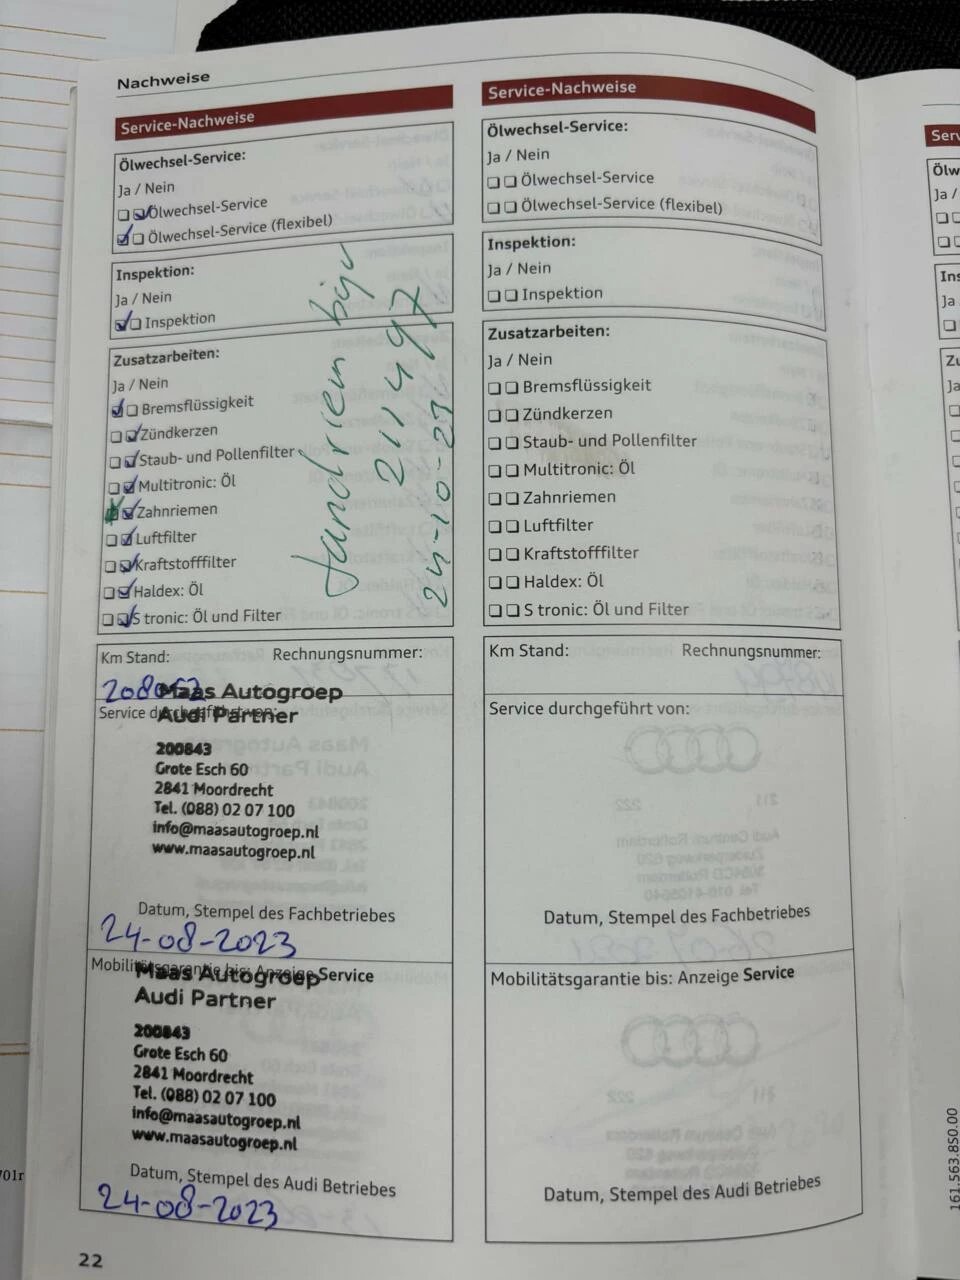 Nachweise
Service-Nachweise
Ölwechsel-Service:
Ja / Nein
Ölwechsel-Service
Ölwechsel-Service (flexibel)
Inspektion:
Ja / Nein
Inspektion
Zusatzarbeiten:
Ja / Nein
Bremsflüssigkeit
Zündkerzen
Staub- und Pollenfilter
Multitronic: Öl
Zahnriemen
Luftfilter
Kraftstofffilter
Haldex: Öl
S tronic: Öl und Filter
211497
24-10-23
Km Stand: Rechnungsnummer:
Maas Autogroep
Service durchgeführt von:
Audi Partner
200843
Grote Esch 60
2841 Moordrecht
Tel. (088) 02 07 100
info@maasautogroep.nl
www.maasautogroep.nl
Datum, Stempel des Fachbetriebes
24-08-2023
Mobilitätsgarantie bis: Anzeige Service
Maas Autogroep
Audi Partner
200843
Grote Esch 60
2841 Moordrecht
Tel. (088) 02 07 100
info@maasautogroep.nl
www.maasautogroep.nl
Datum, Stempel des Audi Betriebes
24-08-2023
22
Service-Nachweise
Ölwechsel-Service:
Ja / Nein
Ölwechsel-Service
Ölwechsel-Service (flexibel)
Inspektion:
Ja / Nein
Inspektion
Zusatzarbeiten:
Ja / Nein
Bremsflüssigkeit
Zündkerzen
Staub- und Pollenfilter
Multitronic: Öl
Zahnriemen
Luftfilter
Kraftstofffilter
Haldex: Öl
S tronic: Öl und Filter
Km Stand: Rechnungsnummer:
Service durchgeführt von:
Datum, Stempel des Fachbetriebes
Mobilitätsgarantie bis: Anzeige Service
Datum, Stempel des Audi Betriebes
161.563.850.00